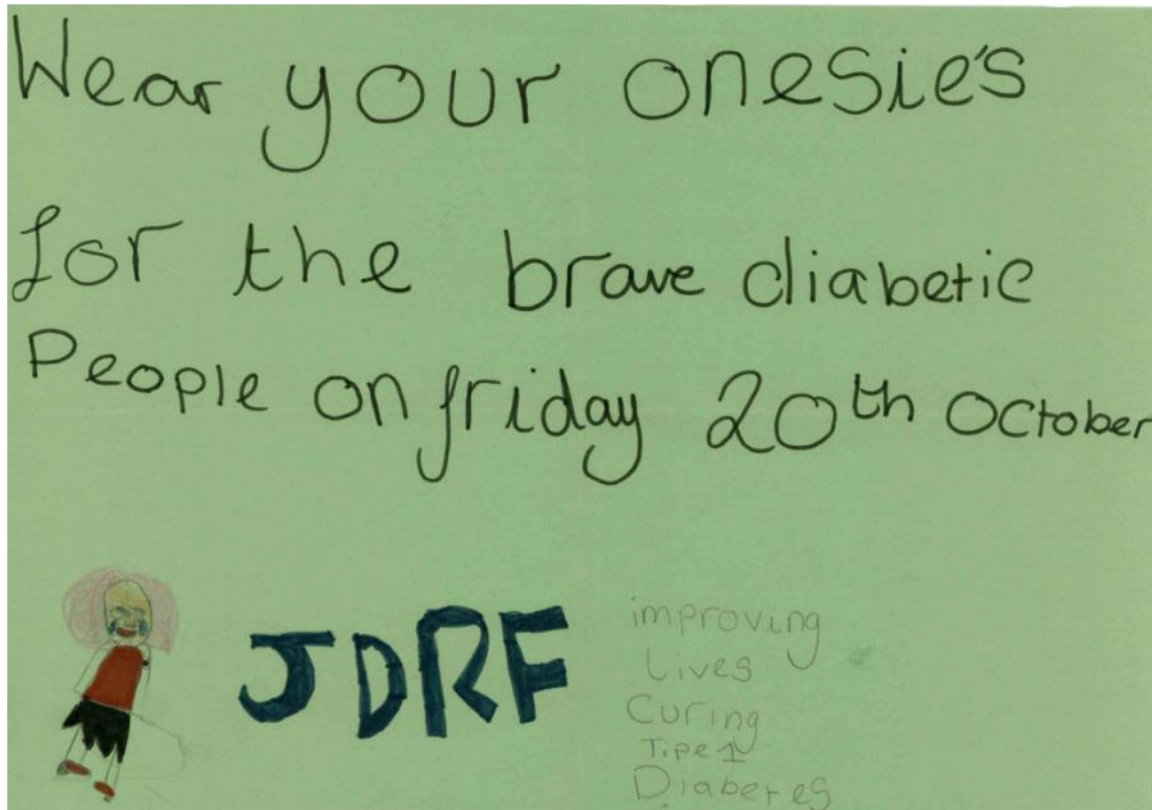 Wear your onesie's
for the brave diabetic
People on friday 20th October
JDRF
improving
Lives
Curing
Tipe 1
Diabetes